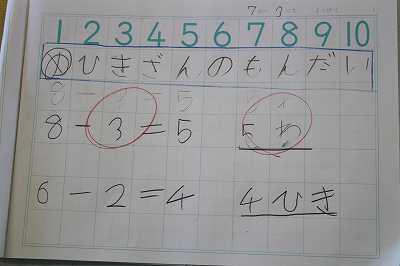 1 2 3 4 5 6 7 8 9 10
め ひきざんのもんだい
8-3=5 5わ
6-2=4 4ひき